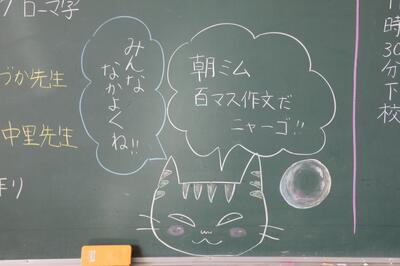 ローマ字
づか先生
中里先生
みんな
なかよくね!!
朝ミム
百マス作文だ
ニャーゴ!!
時
30
分
下
校